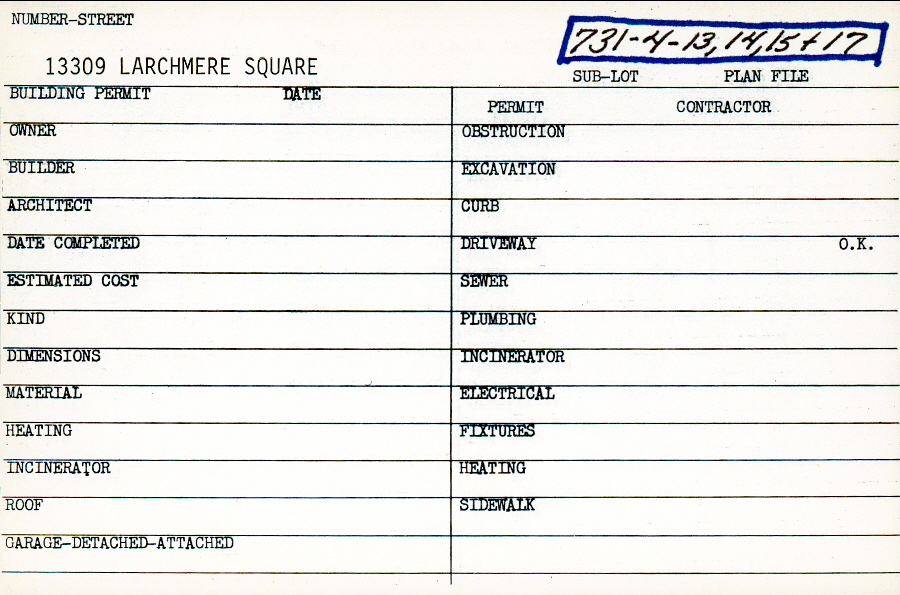 NUMBER-STREET
731-4-13,14,15+17
13309 LARCHMERE SQUARE
SUB-LOT PLAN FILE
BUILDING PERMIT DATE
PERMIT CONTRACTOR
OWNER
OBSTRUCTION
BUILDER
EXCAVATION
ARCHITECT
CURB
DATE COMPLETED
DRIVEWAY O.K.
ESTIMATED COST
SEWER
KIND
PLUMBING
DIMENSIONS
INCINERATOR
MATERIAL
ELECTRICAL
HEATING
FIXTURES
INCINERATOR
HEATING
ROOF
SIDEWALK
GARAGE-DETACHED-ATTACHED